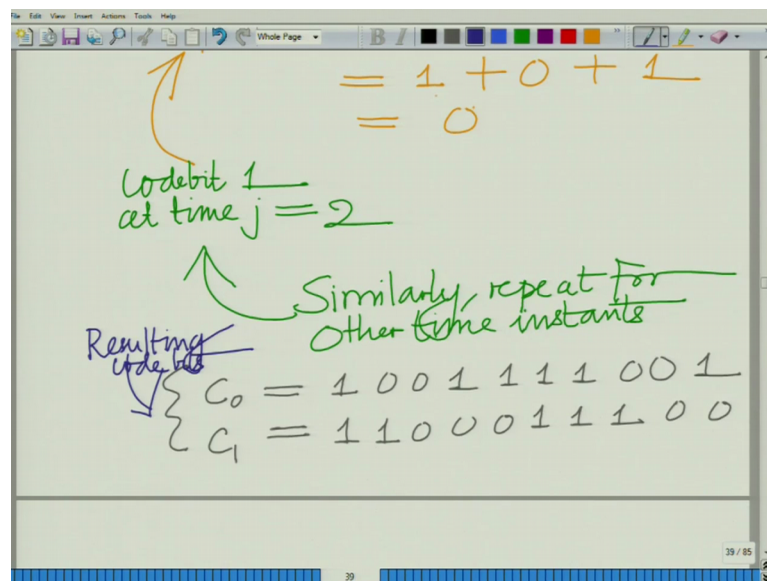 File Edit View Insert Actions Tools Help
Whole Page
B I
= 1 + 0 + 1
= 0
Codebit 1
at time j = 2
Similarly, repeat For
other time instants
Resulting
code bits
C0 = 1 0 0 1 1 1 1 0 0 1
C1 = 1 1 0 0 0 1 1 1 0 0
39 / 85
39